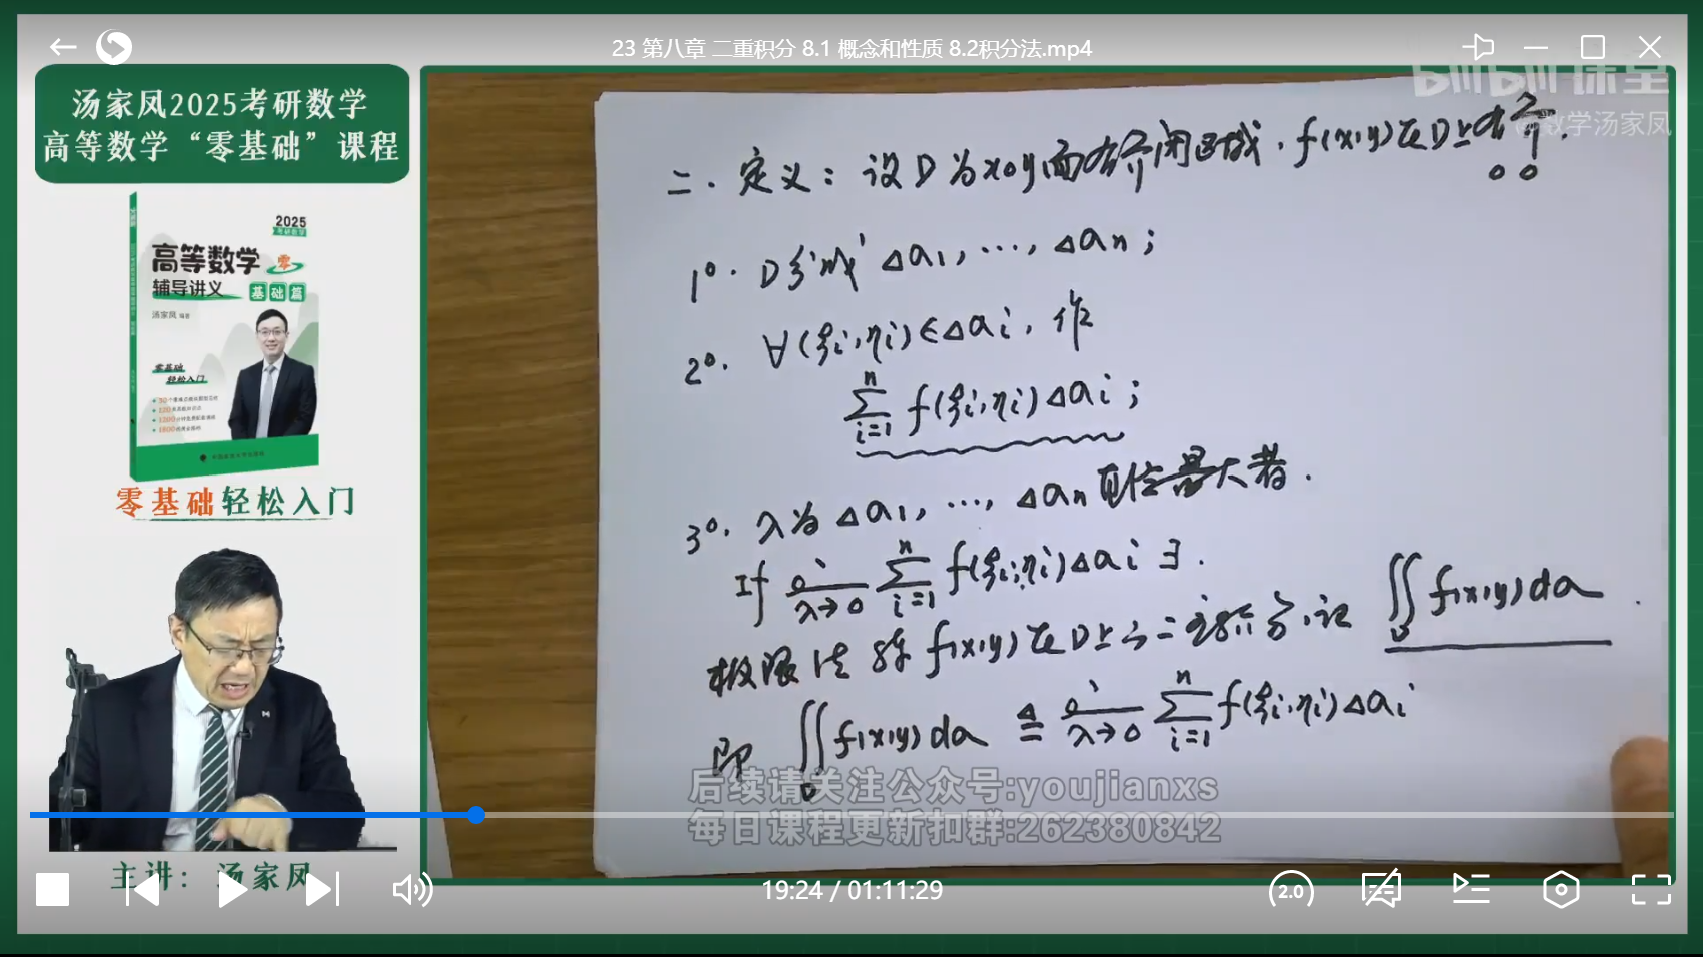 23 第八章 二重积分 8.1 概念和性质 8.2积分法.mp4
汤家凤2025考研数学
高等数学“零基础”课程
2025
考研数学
高等数学 零
辅导讲义 基础篇
汤家凤 编著
零基础
轻松入门
零基础轻松入门
主讲：汤家凤
bilibili 课堂
@数学汤家凤
二. 定义: 设D为xoy面有界闭区域, f(x,y)在D上有界.
1°. D分成 Δa₁, ⋯, Δaₙ;
2°. ∀(ξi,ηi)∈Δai, 作
∑ᵢ₌₁ⁿ f(ξi,ηi)Δai;
3°. λ为 Δa₁, ⋯, Δaₙ 直径最大者.
If lim λ→0 ∑ᵢ₌₁ⁿ f(ξi,ηi)Δai ∃.
极限值称f(x,y)在D上的二重积分, 记 ∬D f(x,y)da.
即 ∬D f(x,y)da ≜ lim λ→0 ∑ᵢ₌₁ⁿ f(ξi,ηi)Δai
后续请关注公众号:youjianxs
每日课程更新扣群:262380842
19:24 / 01:11:29
2.0